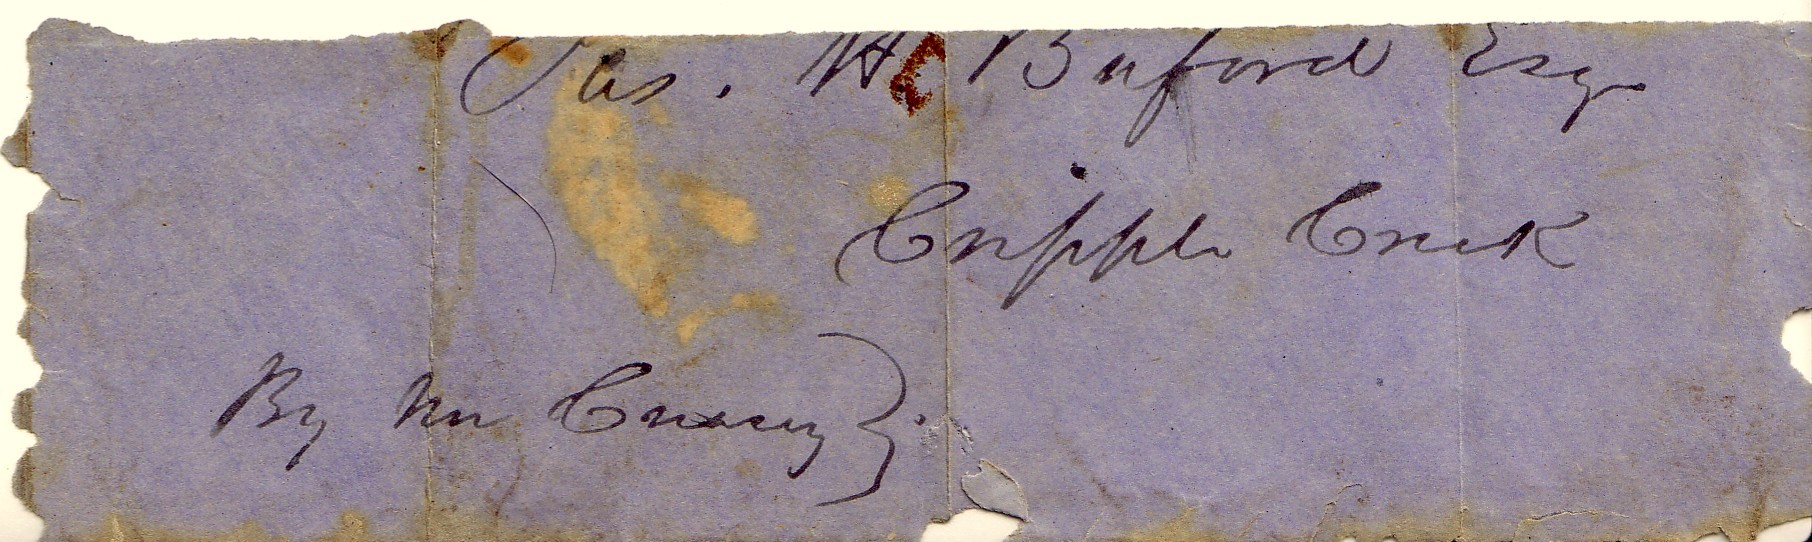 Jas. H Buford Esq
Cripple Creek
By Mr